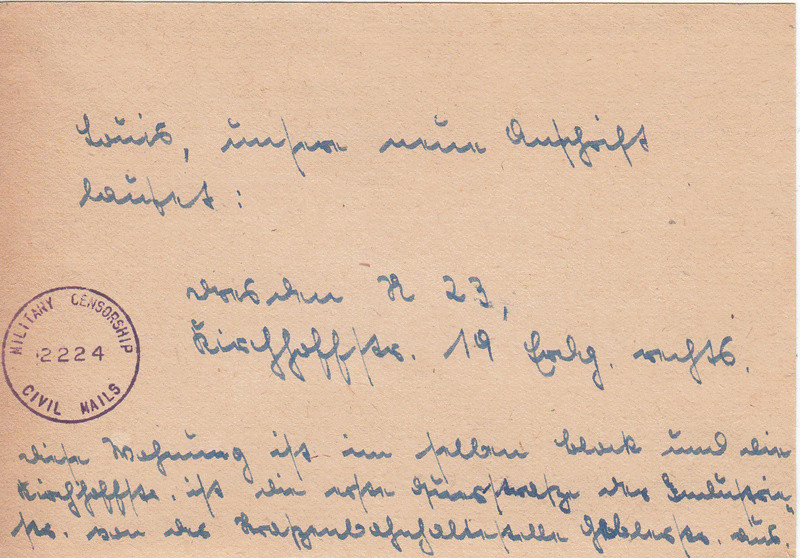 Louis, unsere neue Anschrift
lautet:
Dresden N 23,
Kirchhoffstr. 19 Erdg. rechts.
MILITARY CENSORSHIP
2224
CIVIL MAILS
diese Wohnung ist im selben block und die
Kirchhoffstr. ist die erste Querstraße der Industrie
str. von der Straßenbahnhaltestelle Geblerstr. aus.